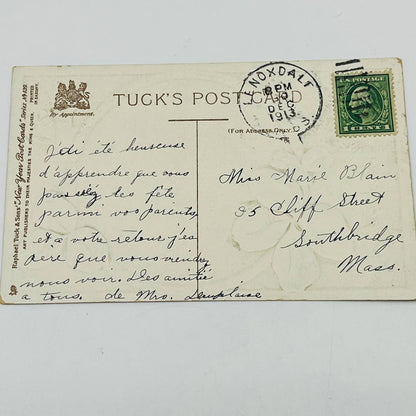 TUCK'S POST CARD
By Appointment.
(FOR ADDRESS ONLY.)
Raphael Tuck & Sons' "New Year Post Cards" Series
ART PUBLISHERS TO THEIR MAJESTIES THE KING & QUEEN.
PRINTED
IN SAXONY.
LENOXDALE
8 PM
DEC
1913
U.S. POSTAGE
1 CENT 1
J'di été heureuse
d'apprendre que vous
passiez les fête
parmi vos parents
et a votre retour j'es
pere que vous viendrez
nous voir. Des amitié
a tous. de Mrs.
Miss Marie Blain
25 Cliff Street
Southbridge
Mass.